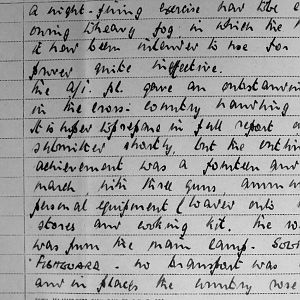 A night-firing exercise had to be
owing to heavy fog in which the
it had been intended to use for
proved quite ineffective.
the a/t. pl. gave an outstanding
in the cross-country handling
It is hoped to prepare in full report
submitted shortly, but the
achievement was a fourteen and
march with three guns, amm
personal equipment (loaded onto
stores and cooking kit. The
was from the main camp.
FISHGUARD - no transport was
and in places the country rose